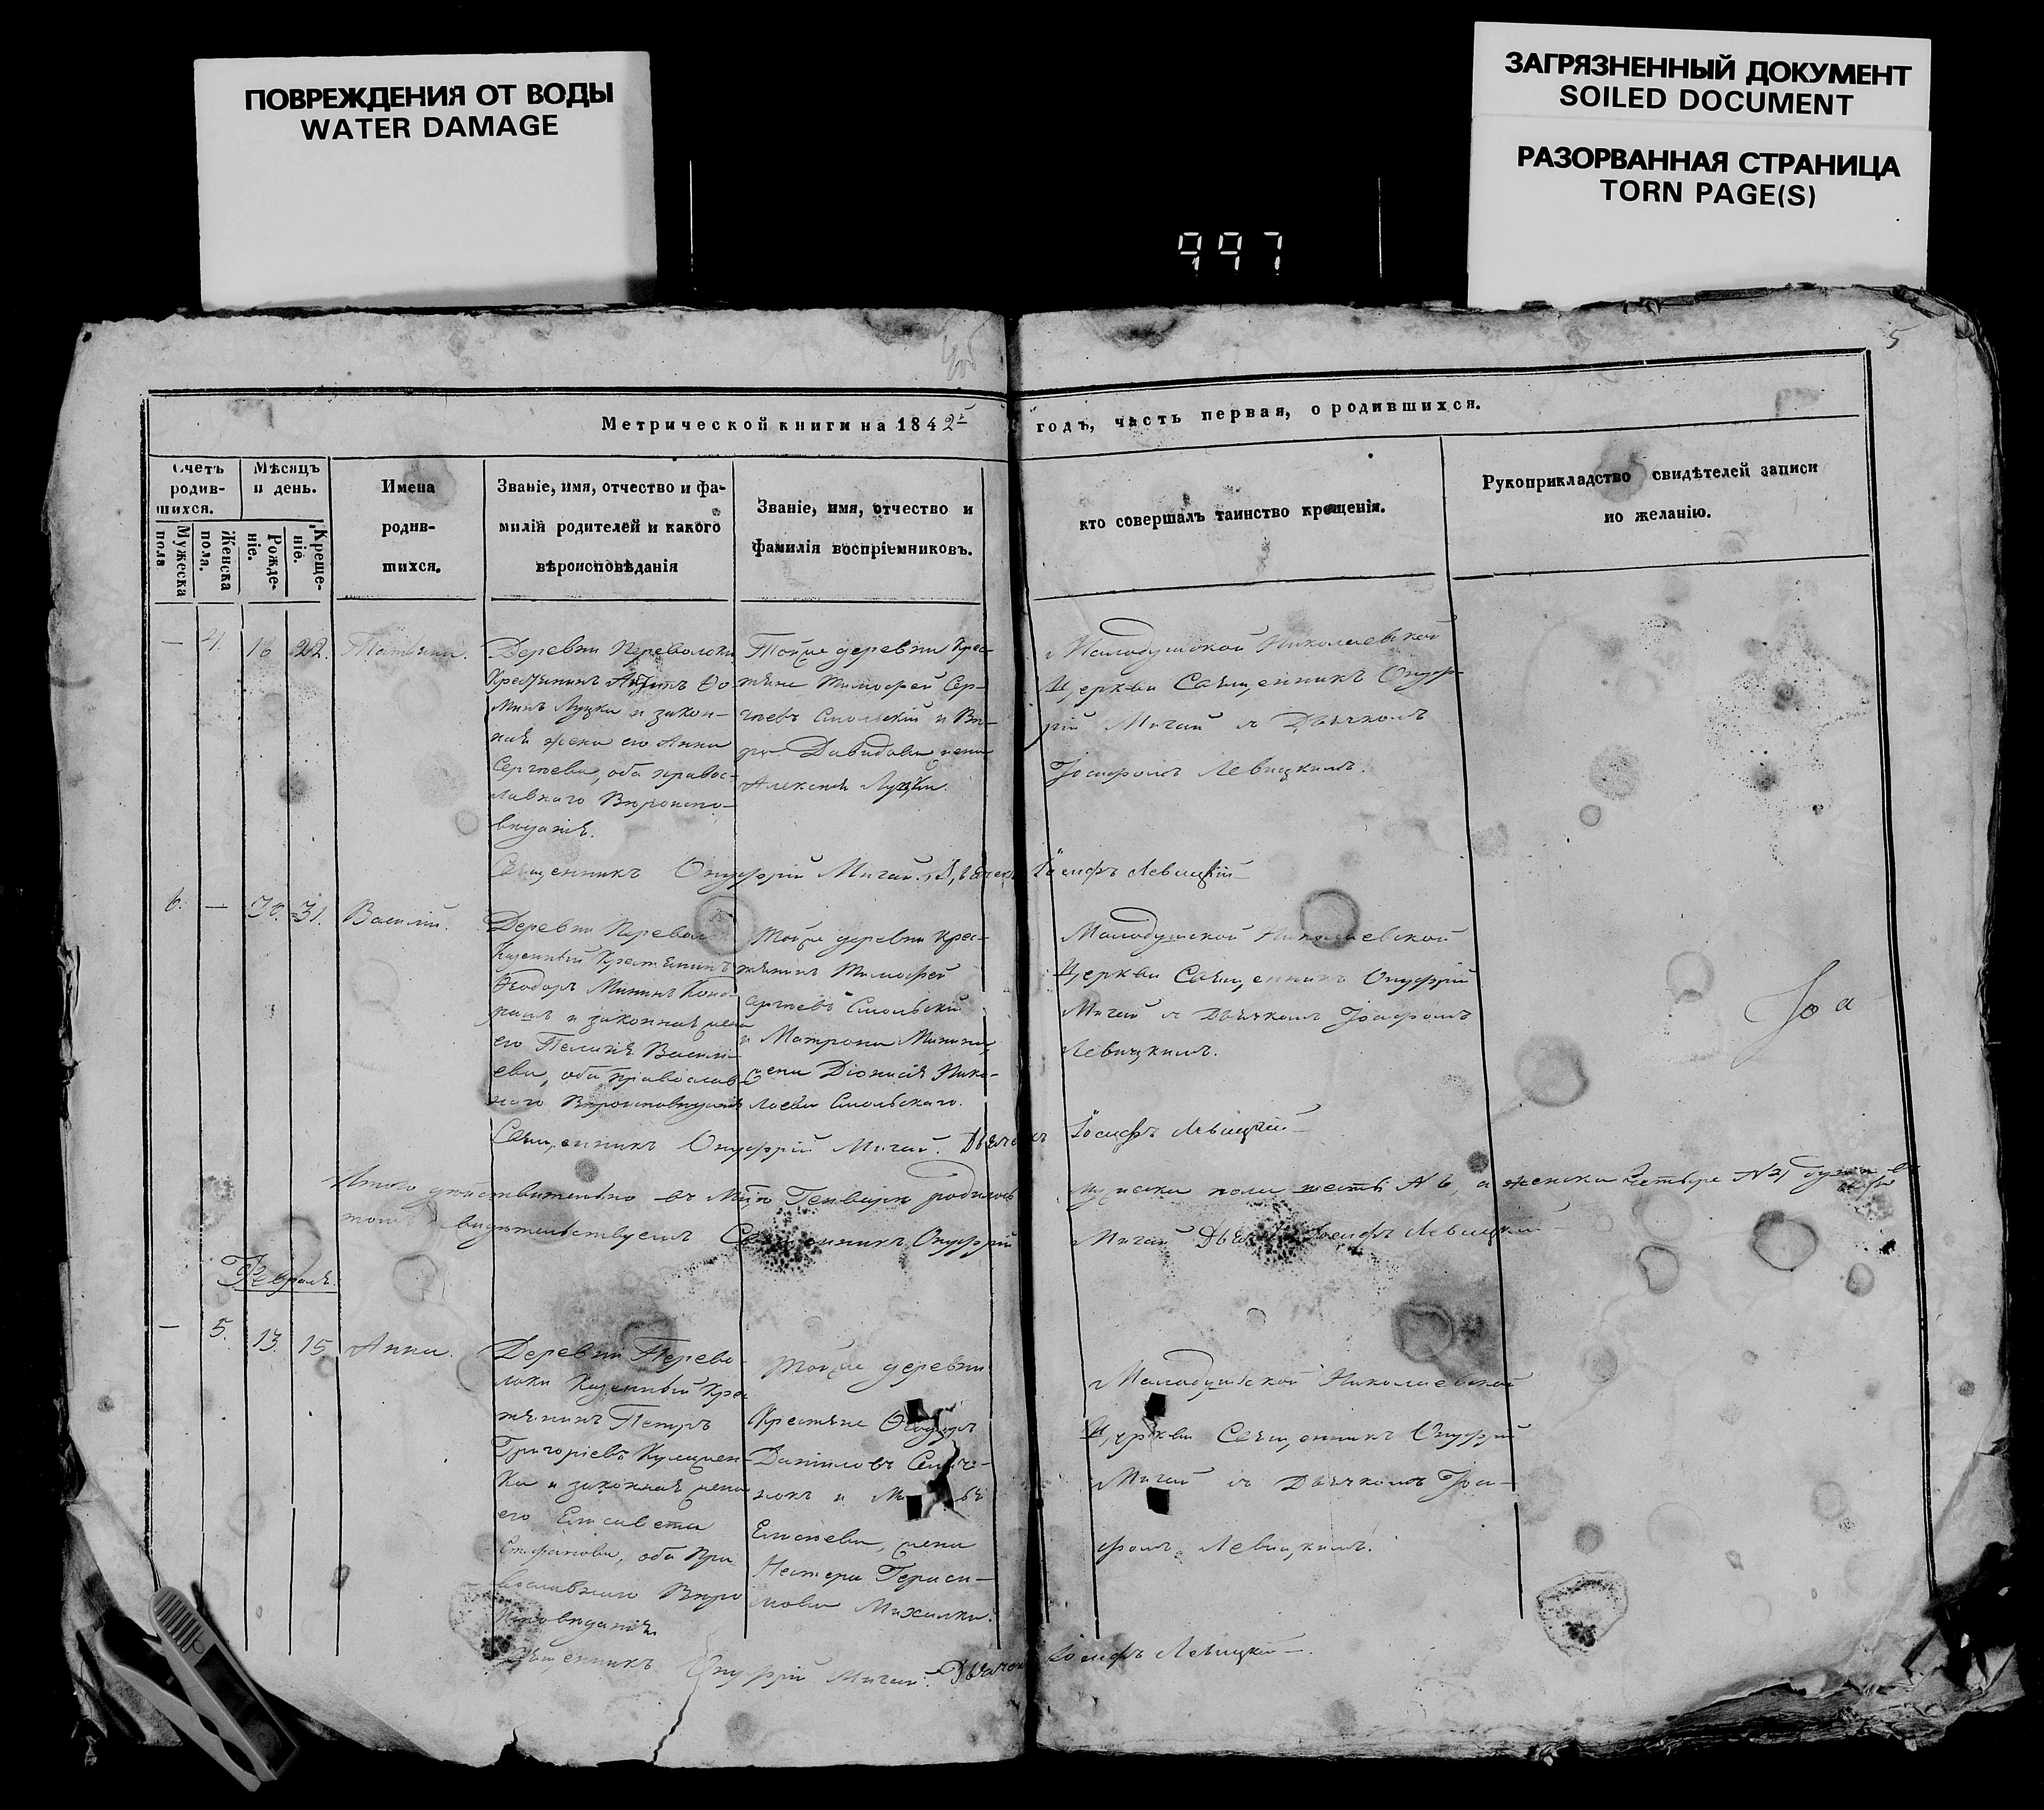 ПОВРЕЖДЕНИЯ ОТ ВОДЫ
WATER DAMAGE
ЗАГРЯЗНЕННЫЙ ДОКУМЕНТ
SOILED DOCUMENT
РАЗОРВАННАЯ СТРАНИЦА
TORN PAGE(S)
997
5
Метрической книги на 1842 годъ, часть первая, о родившихся.
Счетъ
родив-
шихся.
Мужеска
пола
Женска
пола.
Мѣсяцъ
и день.
Рожде-
ніе.
Креще-
ніе.
Имена
родив-
шихся.
Званіе, имя, отчество и фа-
милій родителей и какого
вѣроисповѣданія
Званіе, имя, отчество и
фамилія воспріемниковъ.
кто совершалъ таинство крещенія.
Рукоприкладство свидѣтелей записи
по желанію.
— 4. 18 22. Татьяна.
Деревни Переволоки
Крестьянинъ
Минъ Луцки и закон-
ная жена его Анна
Сергѣева, оба правос-
лавнаго Вѣроиспо-
вѣданія.
Тойже деревни Крес-
тьяне Тимофей Сер-
гѣевъ Смольскій и
Давидова жена
Алексѣя Луцки.
Малодушской Николаевской
Церкви Священникъ Онуф-
рій Мигай съ Дьячкомъ
Іосифомъ Левицкимъ.
Священникъ Онуфрій Мигай. Дьячекъ Іосифъ Левицкій
6. — 30. 31. Василій.
Деревни Перевол
Казенный Крестьянинъ
Ѳеодоръ Мининъ
и законная жена
его Пелагія Василі-
ева, оба Православ-
наго Вѣроисповѣданія
Тойже деревни Крес-
тьянинъ Тимофей
Сергѣевъ Смольскій
и Матрона Минина,
жена Діонисія Нико-
лаева Смольскаго.
Малодушской Николаевской
Церкви Священникъ Онуфрій
Мигай съ Дьячкомъ Іосифомъ
Левицкимъ.
Священникъ Онуфрій Мигай. Дьячекъ Іосифъ Левицкій
Итого дѣйствительно въ Генварѣ родилось мужеска пола шесть № 6, а женска четыре № 4
томъ свидѣтельствуемъ Священникъ Онуфрій Мигай Іосифъ Левицкій
Февраль.
— 5. 13. 15. Анна.
Деревни Перево-
локи Казенный Крес
тьянинъ Петръ
Григоріевъ
и законная жена
его Елисавета
Стефанова, оба Пра
вославнаго Вѣро
исповѣданія.
Тойже деревни
Крестьяне
Даниловъ
и
Елисѣева, жена
Нестера Гераси-
мова Михалки.
Малодушской Николаевской
Церкви Священникъ Онуфрій
Мигай съ Дьячкомъ Іоси-
фомъ Левицкимъ.
Священникъ Онуфрій Мигай. Дьячекъ Іосифъ Левицкій